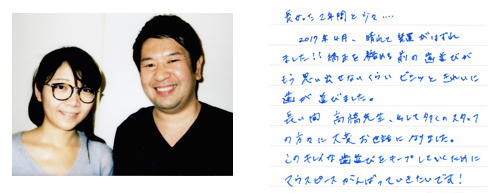 長かった2年間と少々....
2017年4月、晴れて装置がはずれ
ました!! 矯正を始める前の歯並びが
もう思い出せないくらいピシッときれいに
歯が並びました。
長い間 高橋先生、そして多くのスタッフ
の方々に大変お世話になりました。
このキレイな歯並びをキープしていくために
マウスピースがんばっていきたいです!